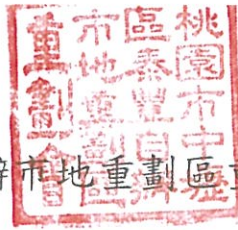 桃園市中壢
區泰豐自辦
市地重劃區
重劃會
辦市地重劃區重